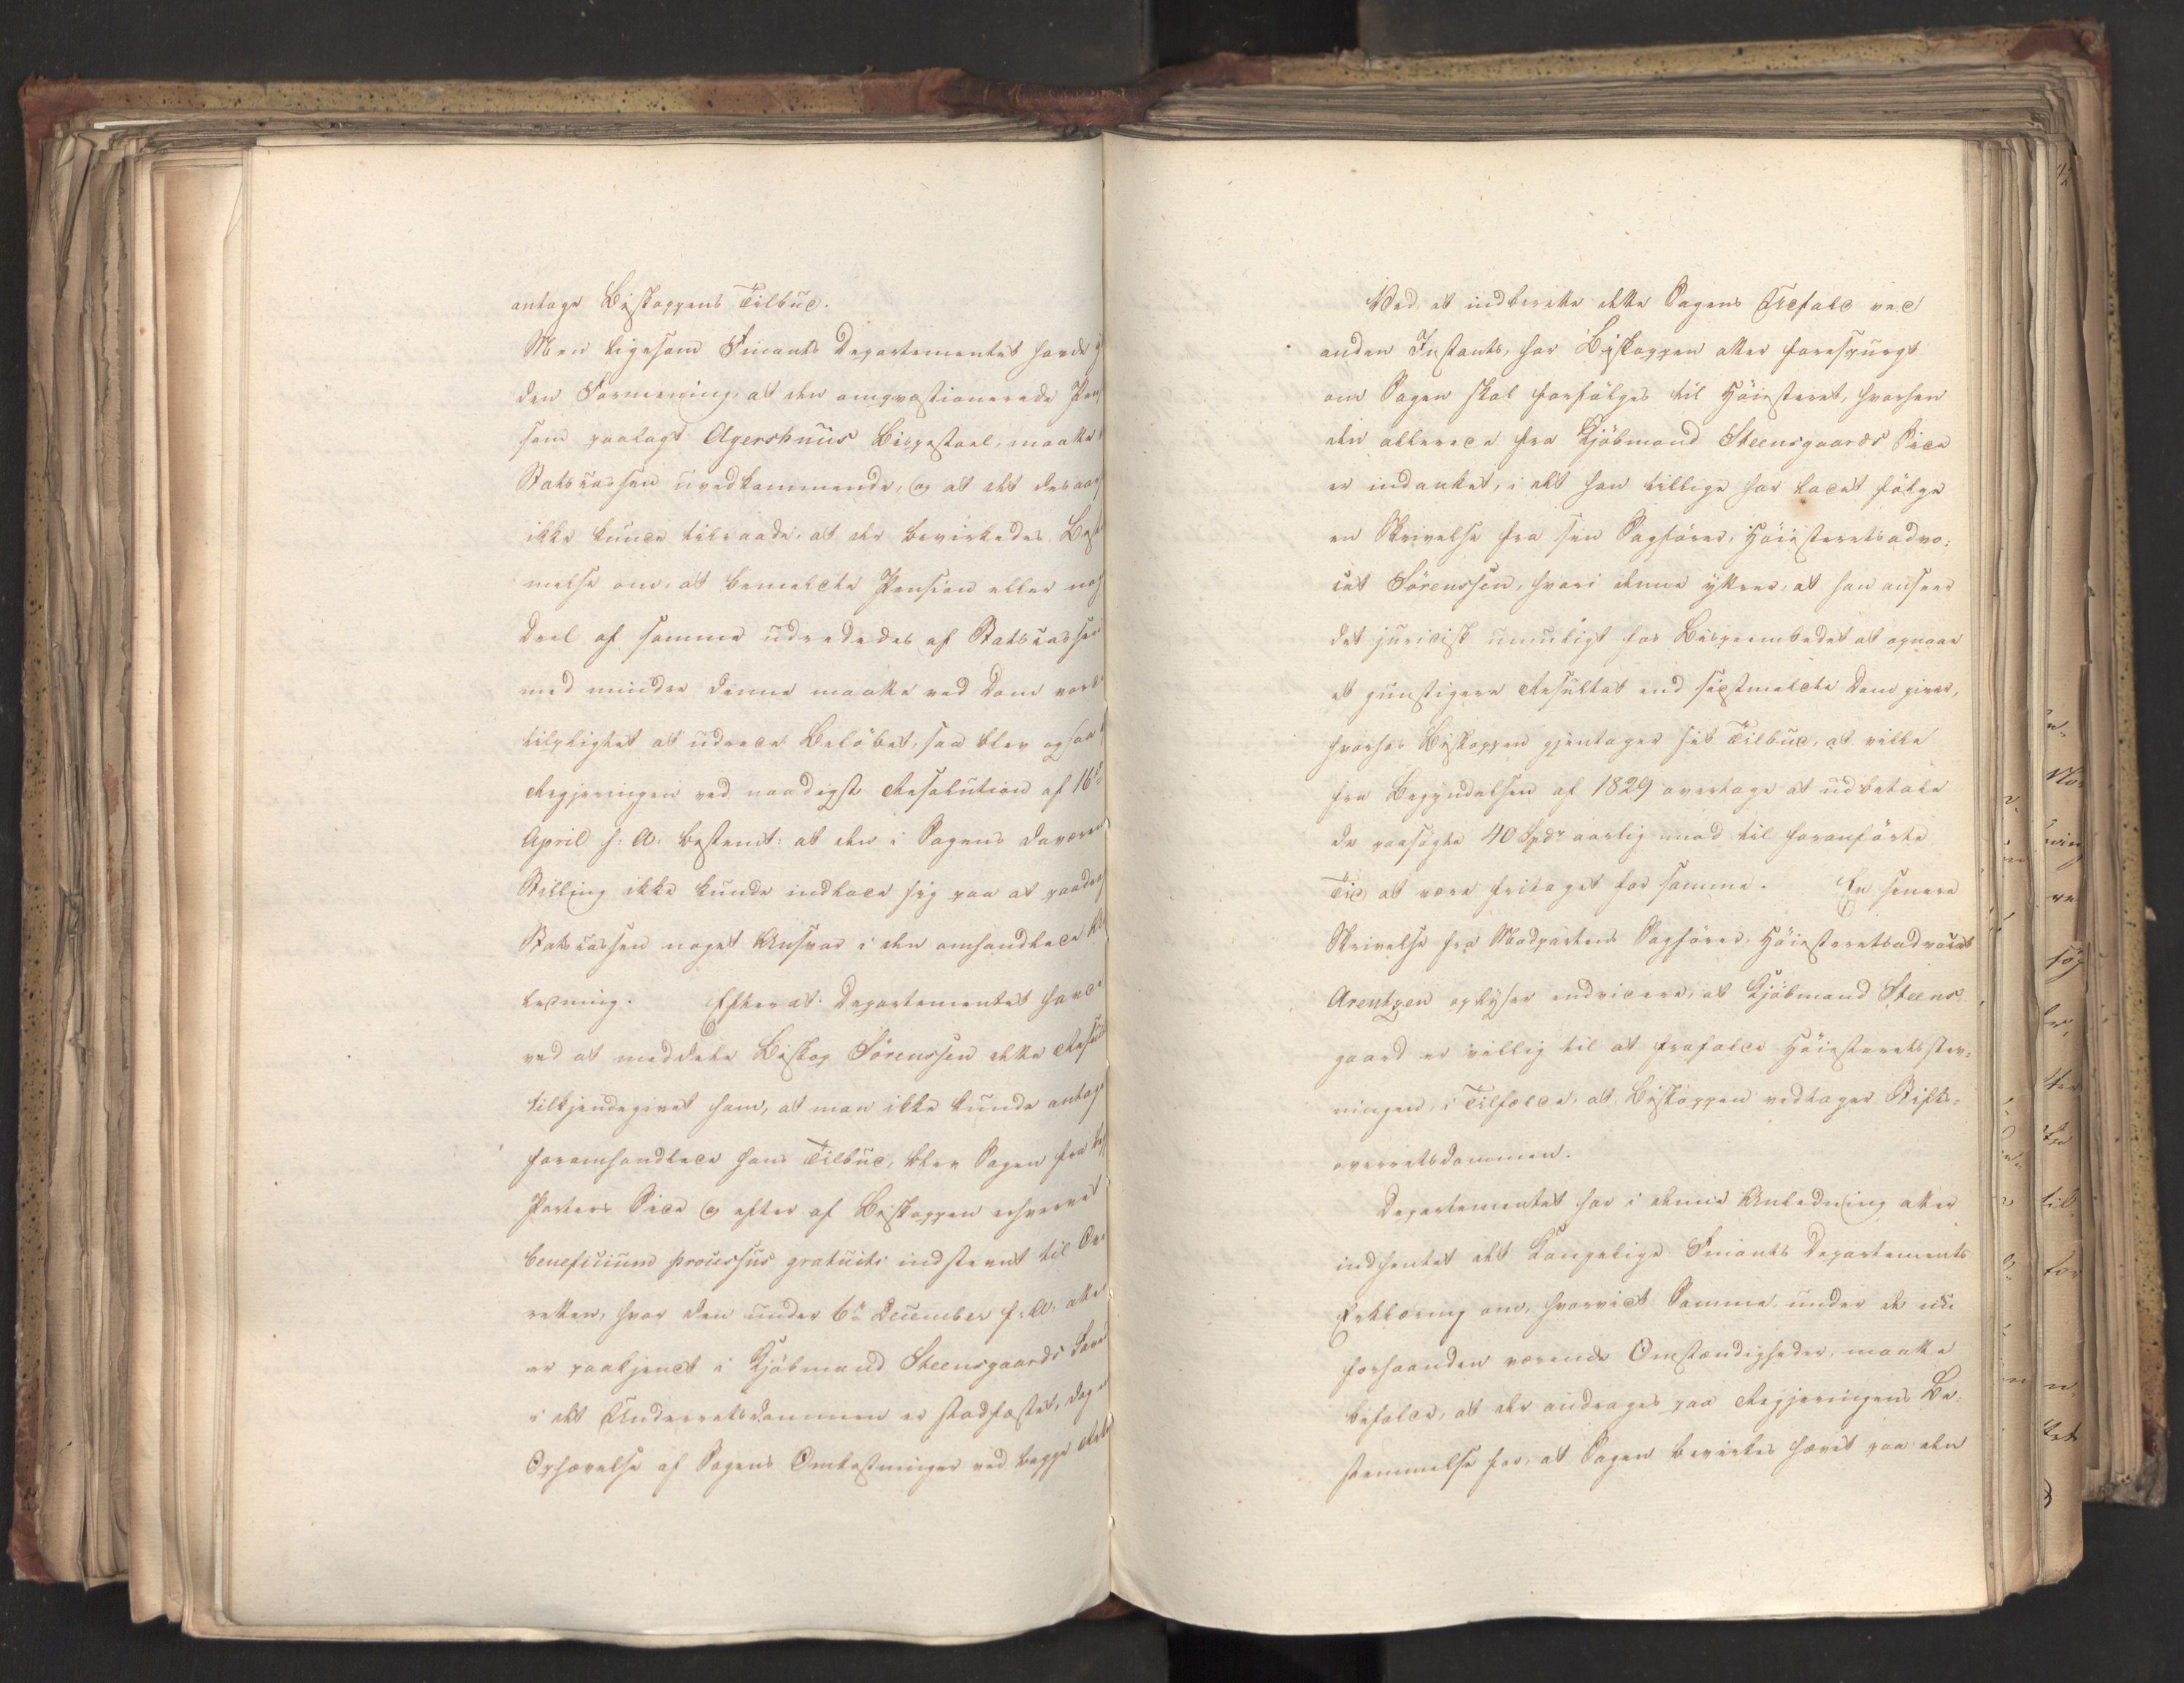 antage Biskoppens Tilbud.
Men ligesom Finants Departementet havde
den Formening, at den omqvæstionerede Pen
som paalagt Agershuus Bispestoel, maatte
Statscassen uvedkommende, og at det desaar
ikke kunde tilraade, at der bevirkedes Best
melse om, at bemeldte Pension eller nog
Deel af samme udrededes af Statscassen
med mindre denne maatte ved Dom vorde
tilpligtet at udrede Beløbet, saa blev ogsaa
Regjeringen ved naadigst Resolution af 16de
April f: A: bestemt: at den i Sagens daværen
Stilling ikke kunde indlade sig paa at paadrag
Statscassen noget Ansvar i den omhandlede
ledning. Efterat Departementet havde
ved at meddele Biskop Sörenssen dette Resul
tilkjendegivet ham, at man ikke kunde antage
foromhandlede hans Tilbud, blev Sagen fra
Parters Side og efter af Biskoppen erhvervet
beneficium processus gratuiti indstevnt til Ove
retten, hvor den under 6te December f: A: atter
er paakjendt i Kjöbmand Steensgaards Faveur
i det Underretsdommen er stadfæstet, dog
Ophævelse af Sagens Omkostninger ved begge Rette
Ved at indberette dette Sagens Udfald ved
anden Instants, har Biskoppen atter forespurgt
om Sagen skal forfölges til Höiesteret, hvorhen
den allerede fra Kjöbmand Steensgaards Side
er indanket, i det han tillige har ladet fölge
en Skrivelse fra sin Sagförer, Höiesteretsadvo:
cat Sörenssen, hvori denne yttrer, at han anseer
det juridisk umuligt for Bispeembedet at opnaae
et gunstigere Resultat end sidstmeldte Dom giver,
hvorfor Biskoppen gjentager sit Tilbud, at ville
fra Begyndelsen af 1829 overtage at udbetale
de paasagte 40 Spdr aarlig mod til foranförte
Tid at være fritaget for samme. En senere
Skrivelse fra Modpartens Sagförer, Höiesteretsadvocat
Arentzen oplyser endvidere, at Kjöbmand Steens
gaard er villig til at frafalde Höiesteretsstev:
ningen, i Tilfælde, at Biskoppen vedtager Stifts:
overretsdommen.
Departementet har i denne Anledning atter
indhentet det Kongelige Finants Departements
Erklæring om, hvorvidt Samme, under de nu
forhaanden værende Omstændigheder, maatte
befalde, at der andrages paa Regjeringens Be:
stemmelse for, at Sagen bevirkes hævet paa den